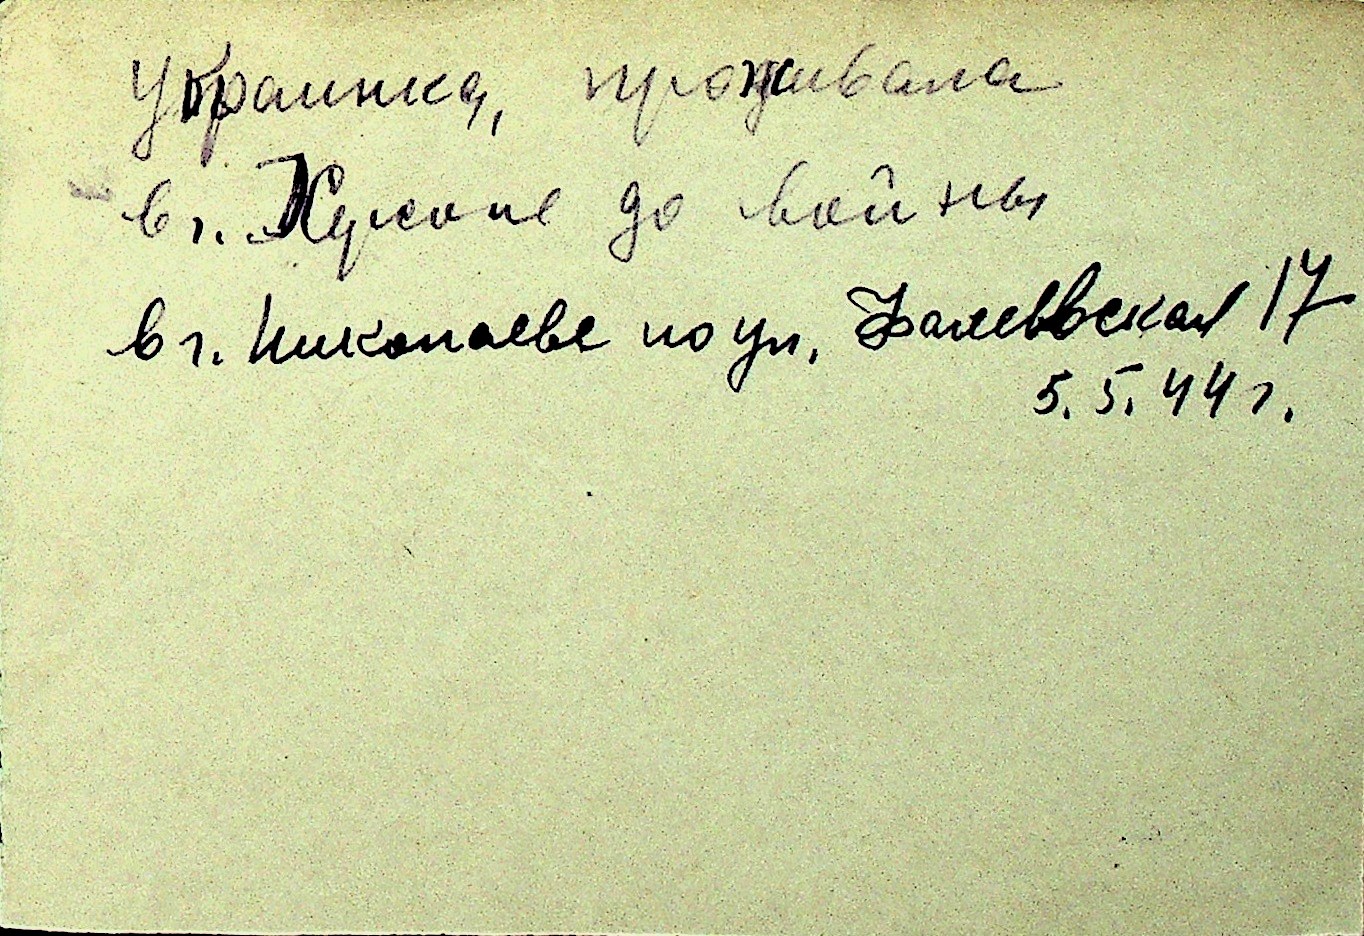 Украинка, проживала
в г. Херсоне до войны
в г. Николаеве по ул. Фалеевская 17
5.5.44 г.